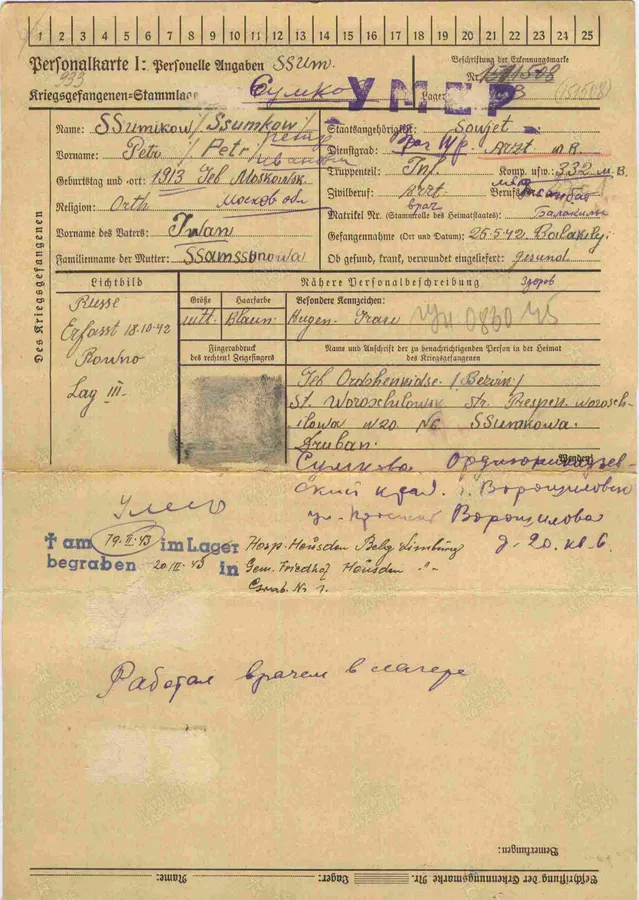 1 2 3 4 5 6 7 8 9 10 11 12 13 14 15 16 17 18 19 20 21 22 23 24 25
Personalkarte I: Personelle Angaben SSum.
Beschriftung der Erkennungsmarke
933
Nr.
Kriegsgefangenen=Stammlager
Сумко
УМЕР
Lager
B
Des Kriegsgefangenen
Name: SSumikow / Ssumkow /
Vorname: Petr / Petr /
Петр
Иванович
Geburtstag und =ort: 1913 Geb Moskowsk.
Religion: Orth
Москов обл
Vorname des Vaters: Iwan
Familienname der Mutter: SSamssonowa
Staatsangehörigkeit: Sowjet
Dienstgrad: Врач Arzt
Truppenteil: Inf. Komp. usw.: 332
Zivilberuf: Arzt
врач
Matrikel Nr. (Stammrolle des Heimatstaates)
Gefangennahme (Ort und Datum): 25-5-42. Balakily.
Ob gesund, krank, verwundet eingeliefert: gesund
здоров
Lichtbild
Russe
Erfasst 18.10.42
Rowno
Lag III.
Nähere Personalbeschreibung
Größe
Haarfarbe
Besondere Kennzeichen:
Blaun:
Augen.
0830 45
Fingerabdruck
des rechten! Zeigefingers
Name und Anschrift der zu benachrichtigenden Person in der Heimat
des Kriegsgefangenen
Geb Ordshenikidse /Bezirk/
St. Woroschilowsk Str. Prospen. worosch-
ilowa N20 N6 SSumkowa.
Kuban.
Wenden!
Сумкова. Орджоникидзев-
ский край. г. Ворошиловск
Ворошилова
д-20. кв. 6.
Умер
✝ am 19.II.43 im Lager Hosp. Heusden Belg Limburg
begraben 20.II.43 in Gem. Friedhof Heusden -"-
Grab. Nr 1.
Работал врачем в лагере
Bemerkungen:
Beschriftung der Erkennungsmarke Nr. Lager: Name: